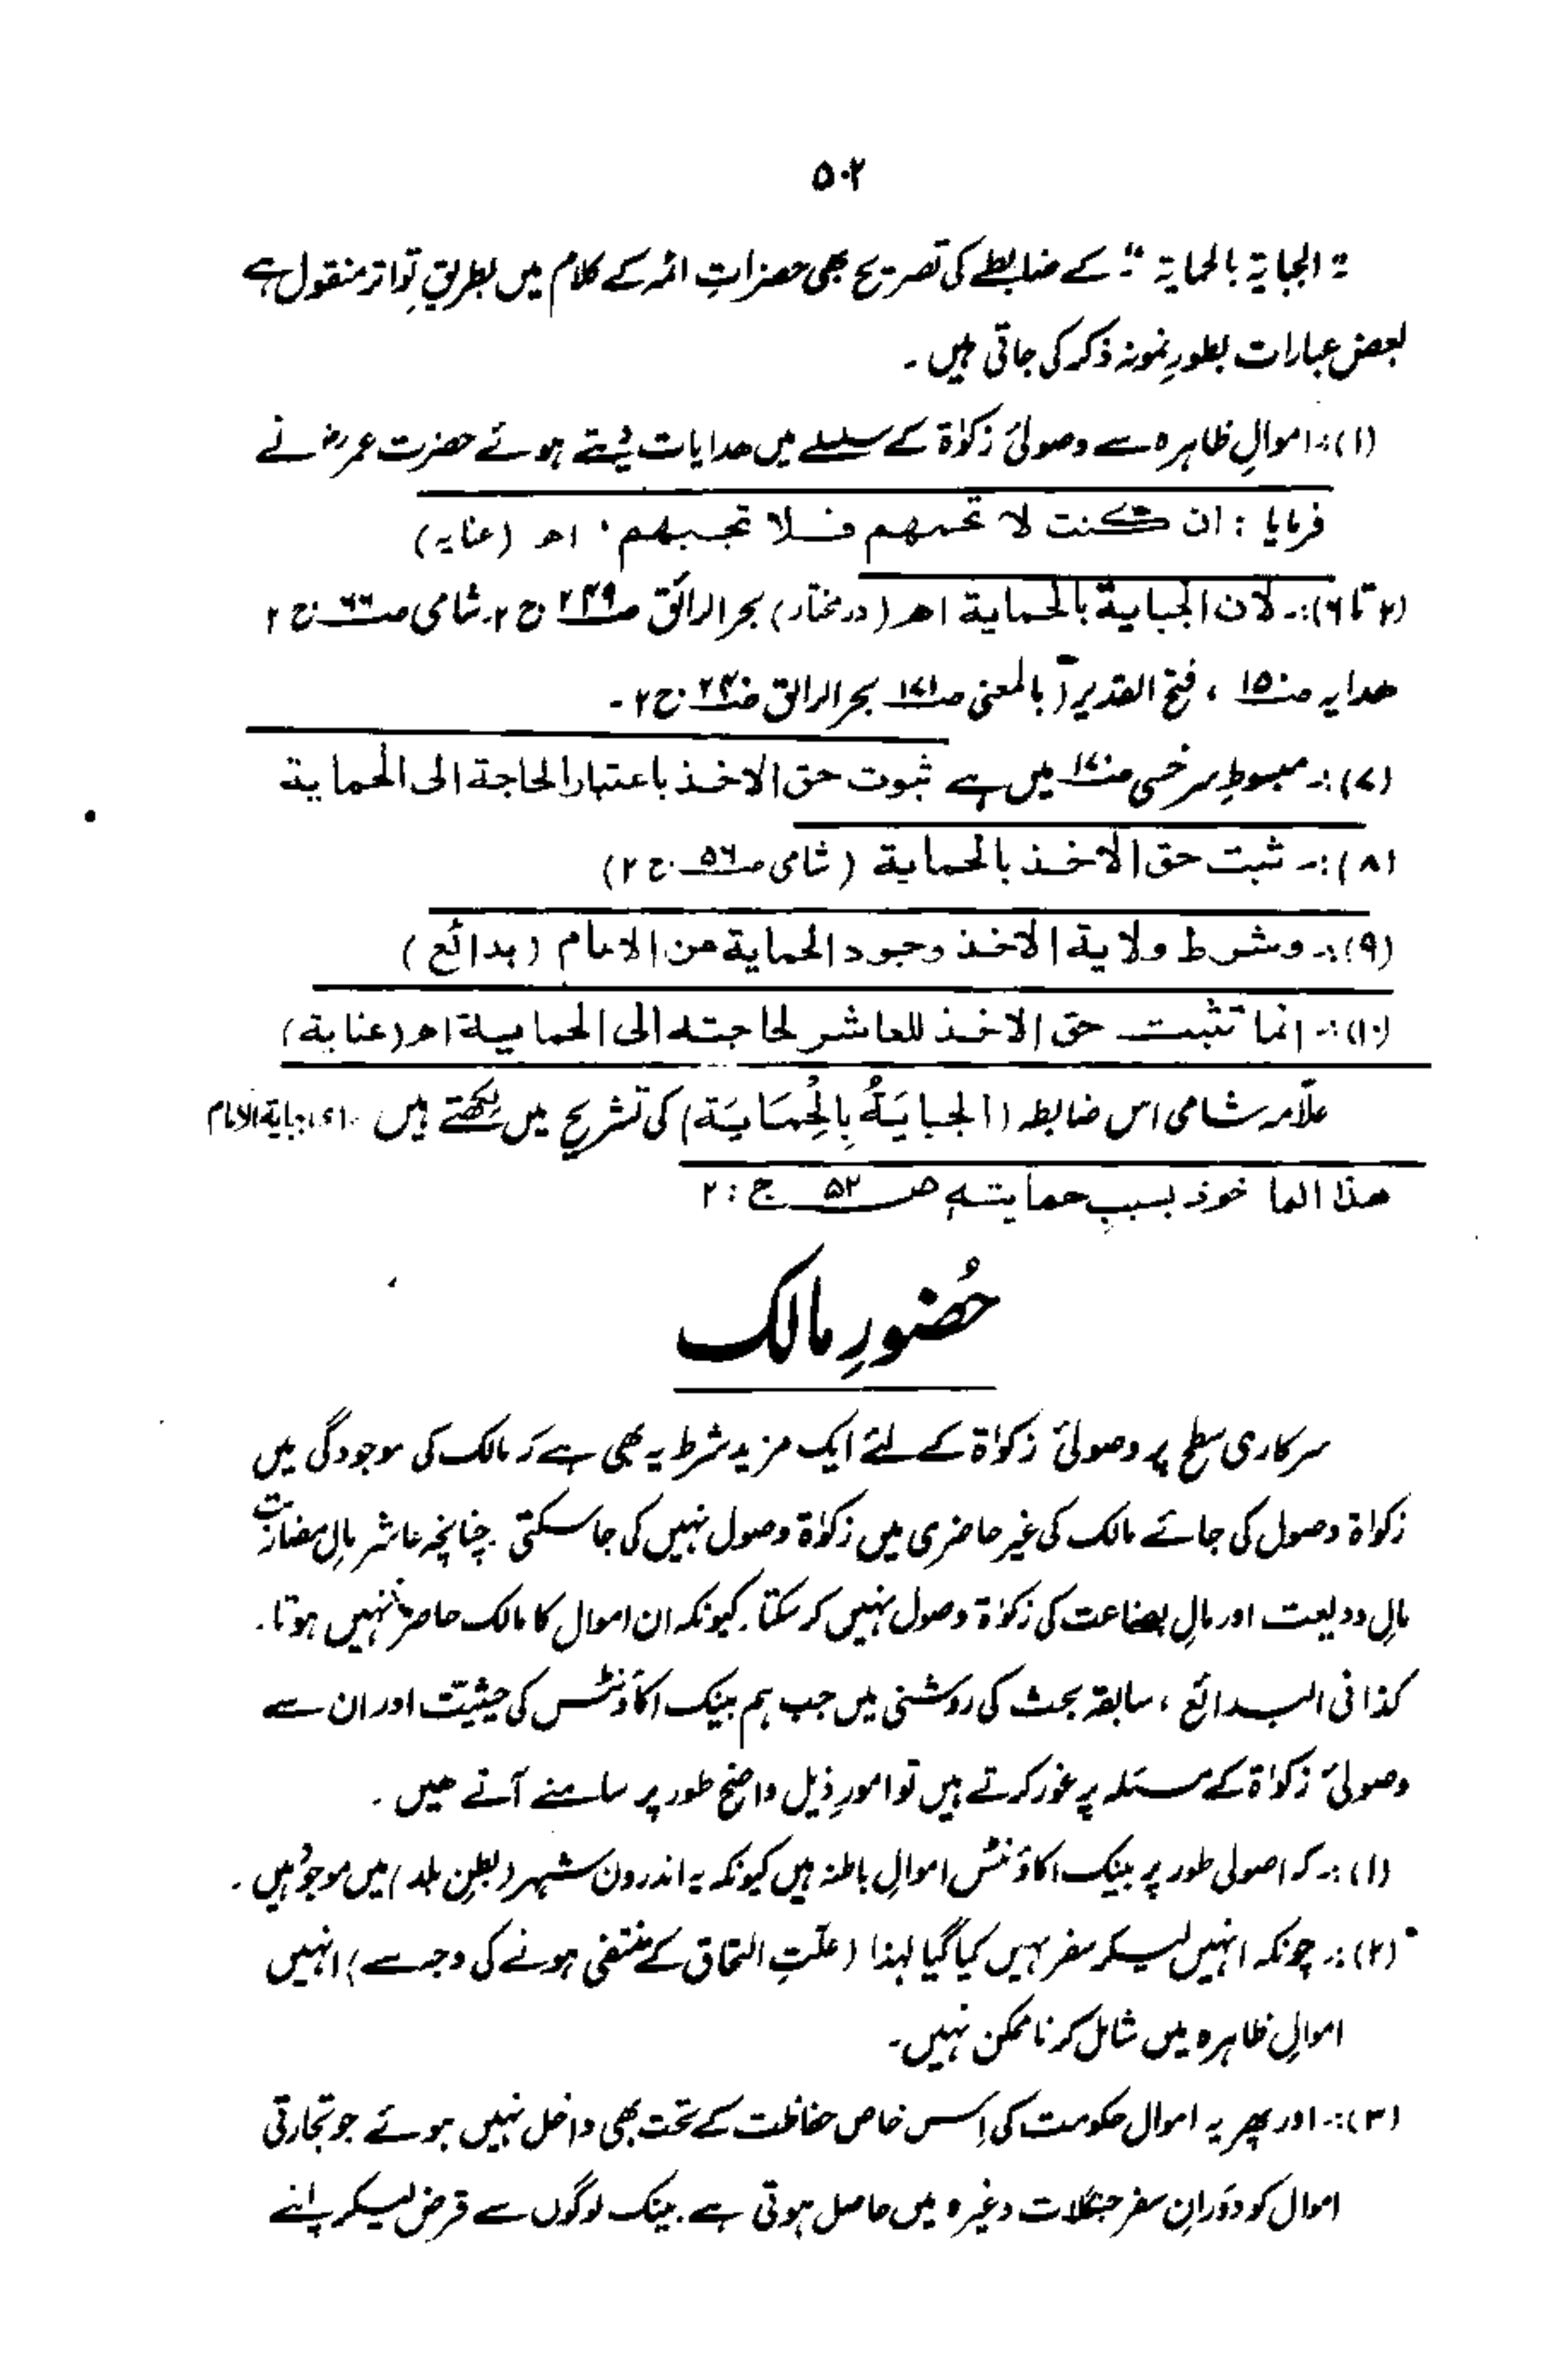 ۵۰۲
"الجبایۃ بالحمایۃ" کے ضابطے کی تصریح بھی حضراتِ ائمہ کے کلام میں بطریقِ تواتر منقول ہے
بعض عبارات بطورِ نمونہ ذکر کی جاتی ہیں ۔
(۱):۔ اموالِ ظاہرہ سے وصولیٔ زکوٰۃ کے سلسلے میں ھدایات دیتے ہوئے حضرت عمرؓ نے
فرمایا : ان کنت لا تحمهم فلا تجبهم ۔ اھ (عنایہ)
(۲ تا ۶):۔ لان الجبایة بالحمایة اھ (درمختار) بحر الرائق صـ۲۴۹ ج ۲۔ شامی صـ۶۶ ج ۲
ھدایہ صـ۱۵ ، فتح القدیر (بالمعنی صـ۱۷۱ بحر الرائق صـ۲۳۰ ج ۲ ۔
(۷):۔ مبسوطِ سرخسی صـ میں ہے ثبوت حق الاخذ باعتبار الحاجة الی الحمایة
(۸):۔ ثبت حق الاخذ بالحمایة (شامی صـ۵۶ ج ۲)
(۹):۔ وشرط ولایة الاخذ وجود الحمایة من الامام (بدائع)
(۱۰):۔ انما تثبت حق الاخذ للعاشر لحاجته الی الحمایة اھ (عنایة)
علّامہ شامی اس ضابطہ (الجبایَةُ بِالْحِمَایَة) کی تشریح میں لکھتے ہیں ۔ ای جبایة الامام
هذا الماخوذ بسببِ حمایتهٖ صـ۵۲ ج : ۲
حُضورِ مالک
سرکاری سطح پر وصولیٔ زکوٰۃ کے لئے ایک مزید شرط یہ بھی ہے کہ مالک کی موجودگی میں
زکواۃ وصول کی جائے مالک کی غیر حاضری میں زکوٰۃ وصول نہیں کی جا سکتی ۔ چنانچہ عاشر مالِ مضاربت
مالِ ودیعت اور مالِ بضاعت کی زکوٰۃ وصول نہیں کر سکتا ۔ کیونکہ ان اموال کا مالک حاضر نہیں ہوتا ۔
کذا فی البدائع ، سابقہ بحث کی روشنی میں جب ہم بینک اکاؤنٹس کی حیثیت اور ان سے
وصولیٔ زکوٰۃ کے مسئلہ پر غور کرتے ہیں تو امورِ ذیل واضح طور پر سامنے آتے ھیں ۔
(۱):۔ کہ اصولی طور پر بینک اکاؤنٹس اموالِ باطنہ ہیں کیونکہ یہ اندرون شہر (بطنِ بلد) میں موجود ہیں ۔
(۲):۔ چونکہ انہیں لیکر سفر نہیں کیا گیا لہذا (علّتِ التحاق کے منتفی ہونے کی وجہ سے) انہیں
اموالِ ظاہرہ میں شامل کرنا ممکن نہیں ۔
(۳):۔ اور پھر یہ اموال حکومت کی اِس خاص حفاظت کے تحت بھی داخل نہیں ہوئے جو تجارتی
اموال کو دورانِ سفر جنگلات وغیرہ میں حاصل ہوتی ہے ۔ بینک لوگوں سے قرض لیکر اپنے